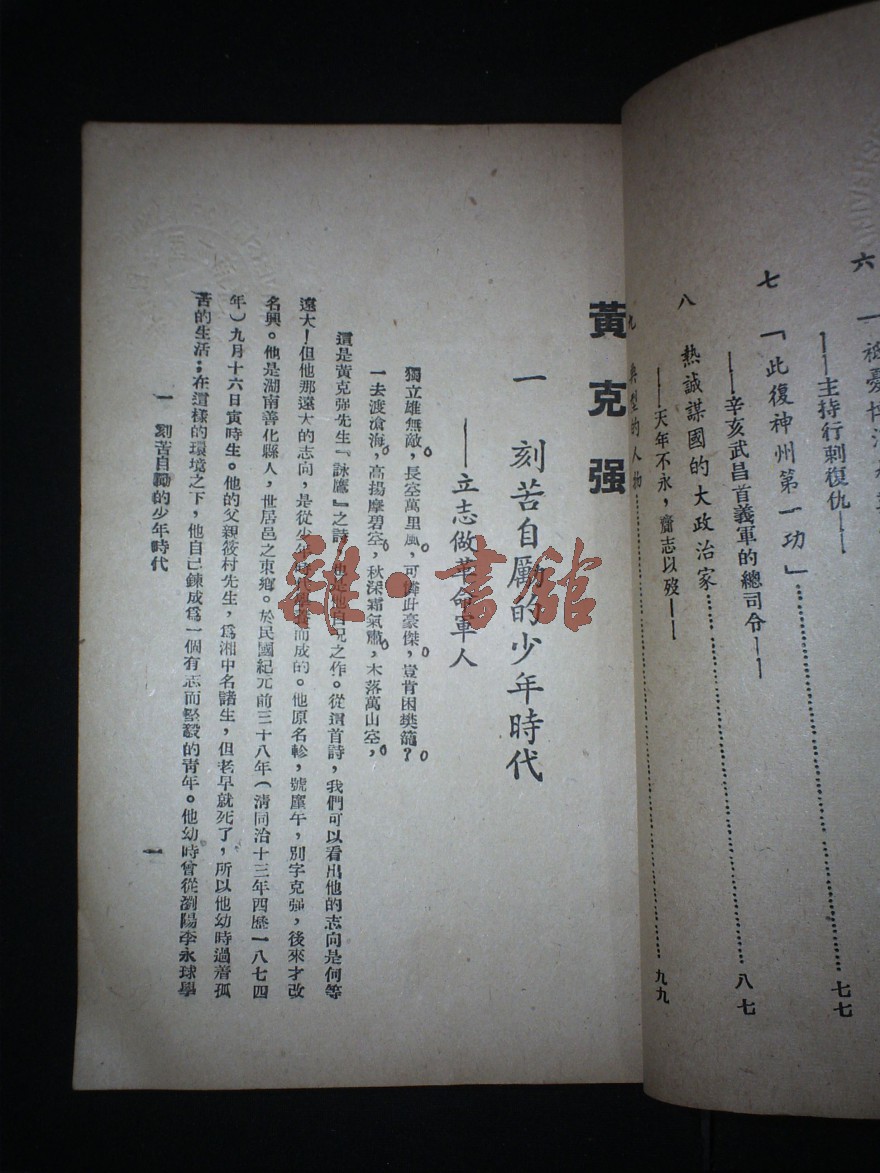 六
——主持行刺復仇——
七 「此復神州第一功」……七七
——辛亥武昌首義軍的總司令——
八 熱誠謀國的大政治家……八七
——天年不永，齎志以歿——
九 典型的人物……九九
黃克强
一 刻苦自勵的少年時代
——立志做革命軍人
獨立雄無敵，長空萬里風，可憐此豪傑，豈肯困樊籠？
一去渡滄海，高揚摩碧空，秋深霜氣肅，木落萬山空，
這是黃克强先生『詠鷹』之詩，也是他自況之作。從這首詩，我們可以看出他的志向是何等
遠大！但他那遠大的志向，是從少年時代 而成的。他原名軫，號廑午，別字克强，後來才改
名興。他是湖南善化縣人，世居邑之東鄉。於民國紀元前三十八年（清同治十三年四歷一八七四
年）九月十六日寅時生。他的父親筱村先生，爲湘中名諸生，但老早就死了，所以他幼時過着孤
苦的生活；在這樣的環境之下，他自己鍊成爲一個有志而堅毅的靑年。他幼時曾從瀏陽李永球學
一 刻苦自勵的少年時代
一
雜·書館